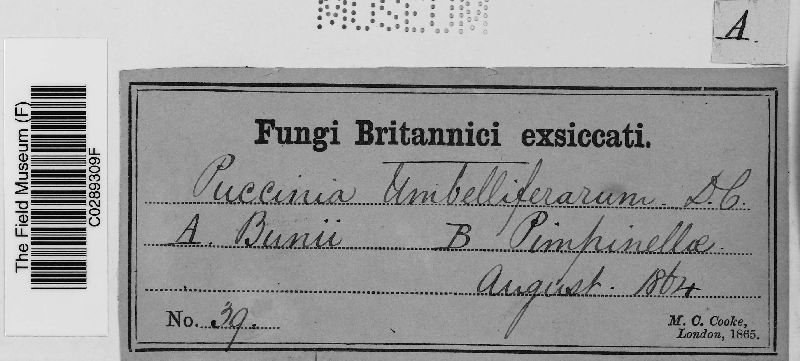 MUSEUM
A.
The Field Museum (F)
C0289309F
Fungi Britannici exsiccati.
Puccinia Umbelliferarum. D.C.
A. Bunii B Pimpinellæ.
August. 1864
No. 39.
M. C. Cooke,
London, 1865.